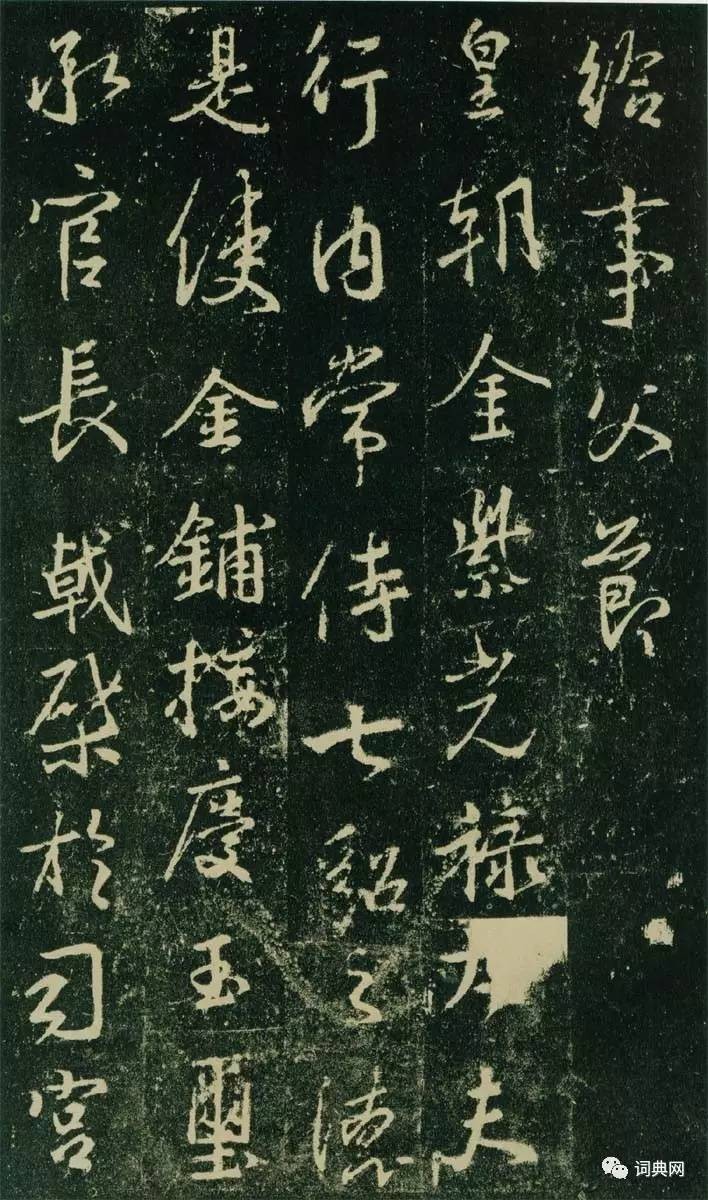 給事父節
皇朝金紫光祿大夫
行內常侍七貂之德
是使金鋪接慶玉璽
承官長戟棨於司宮
词典网